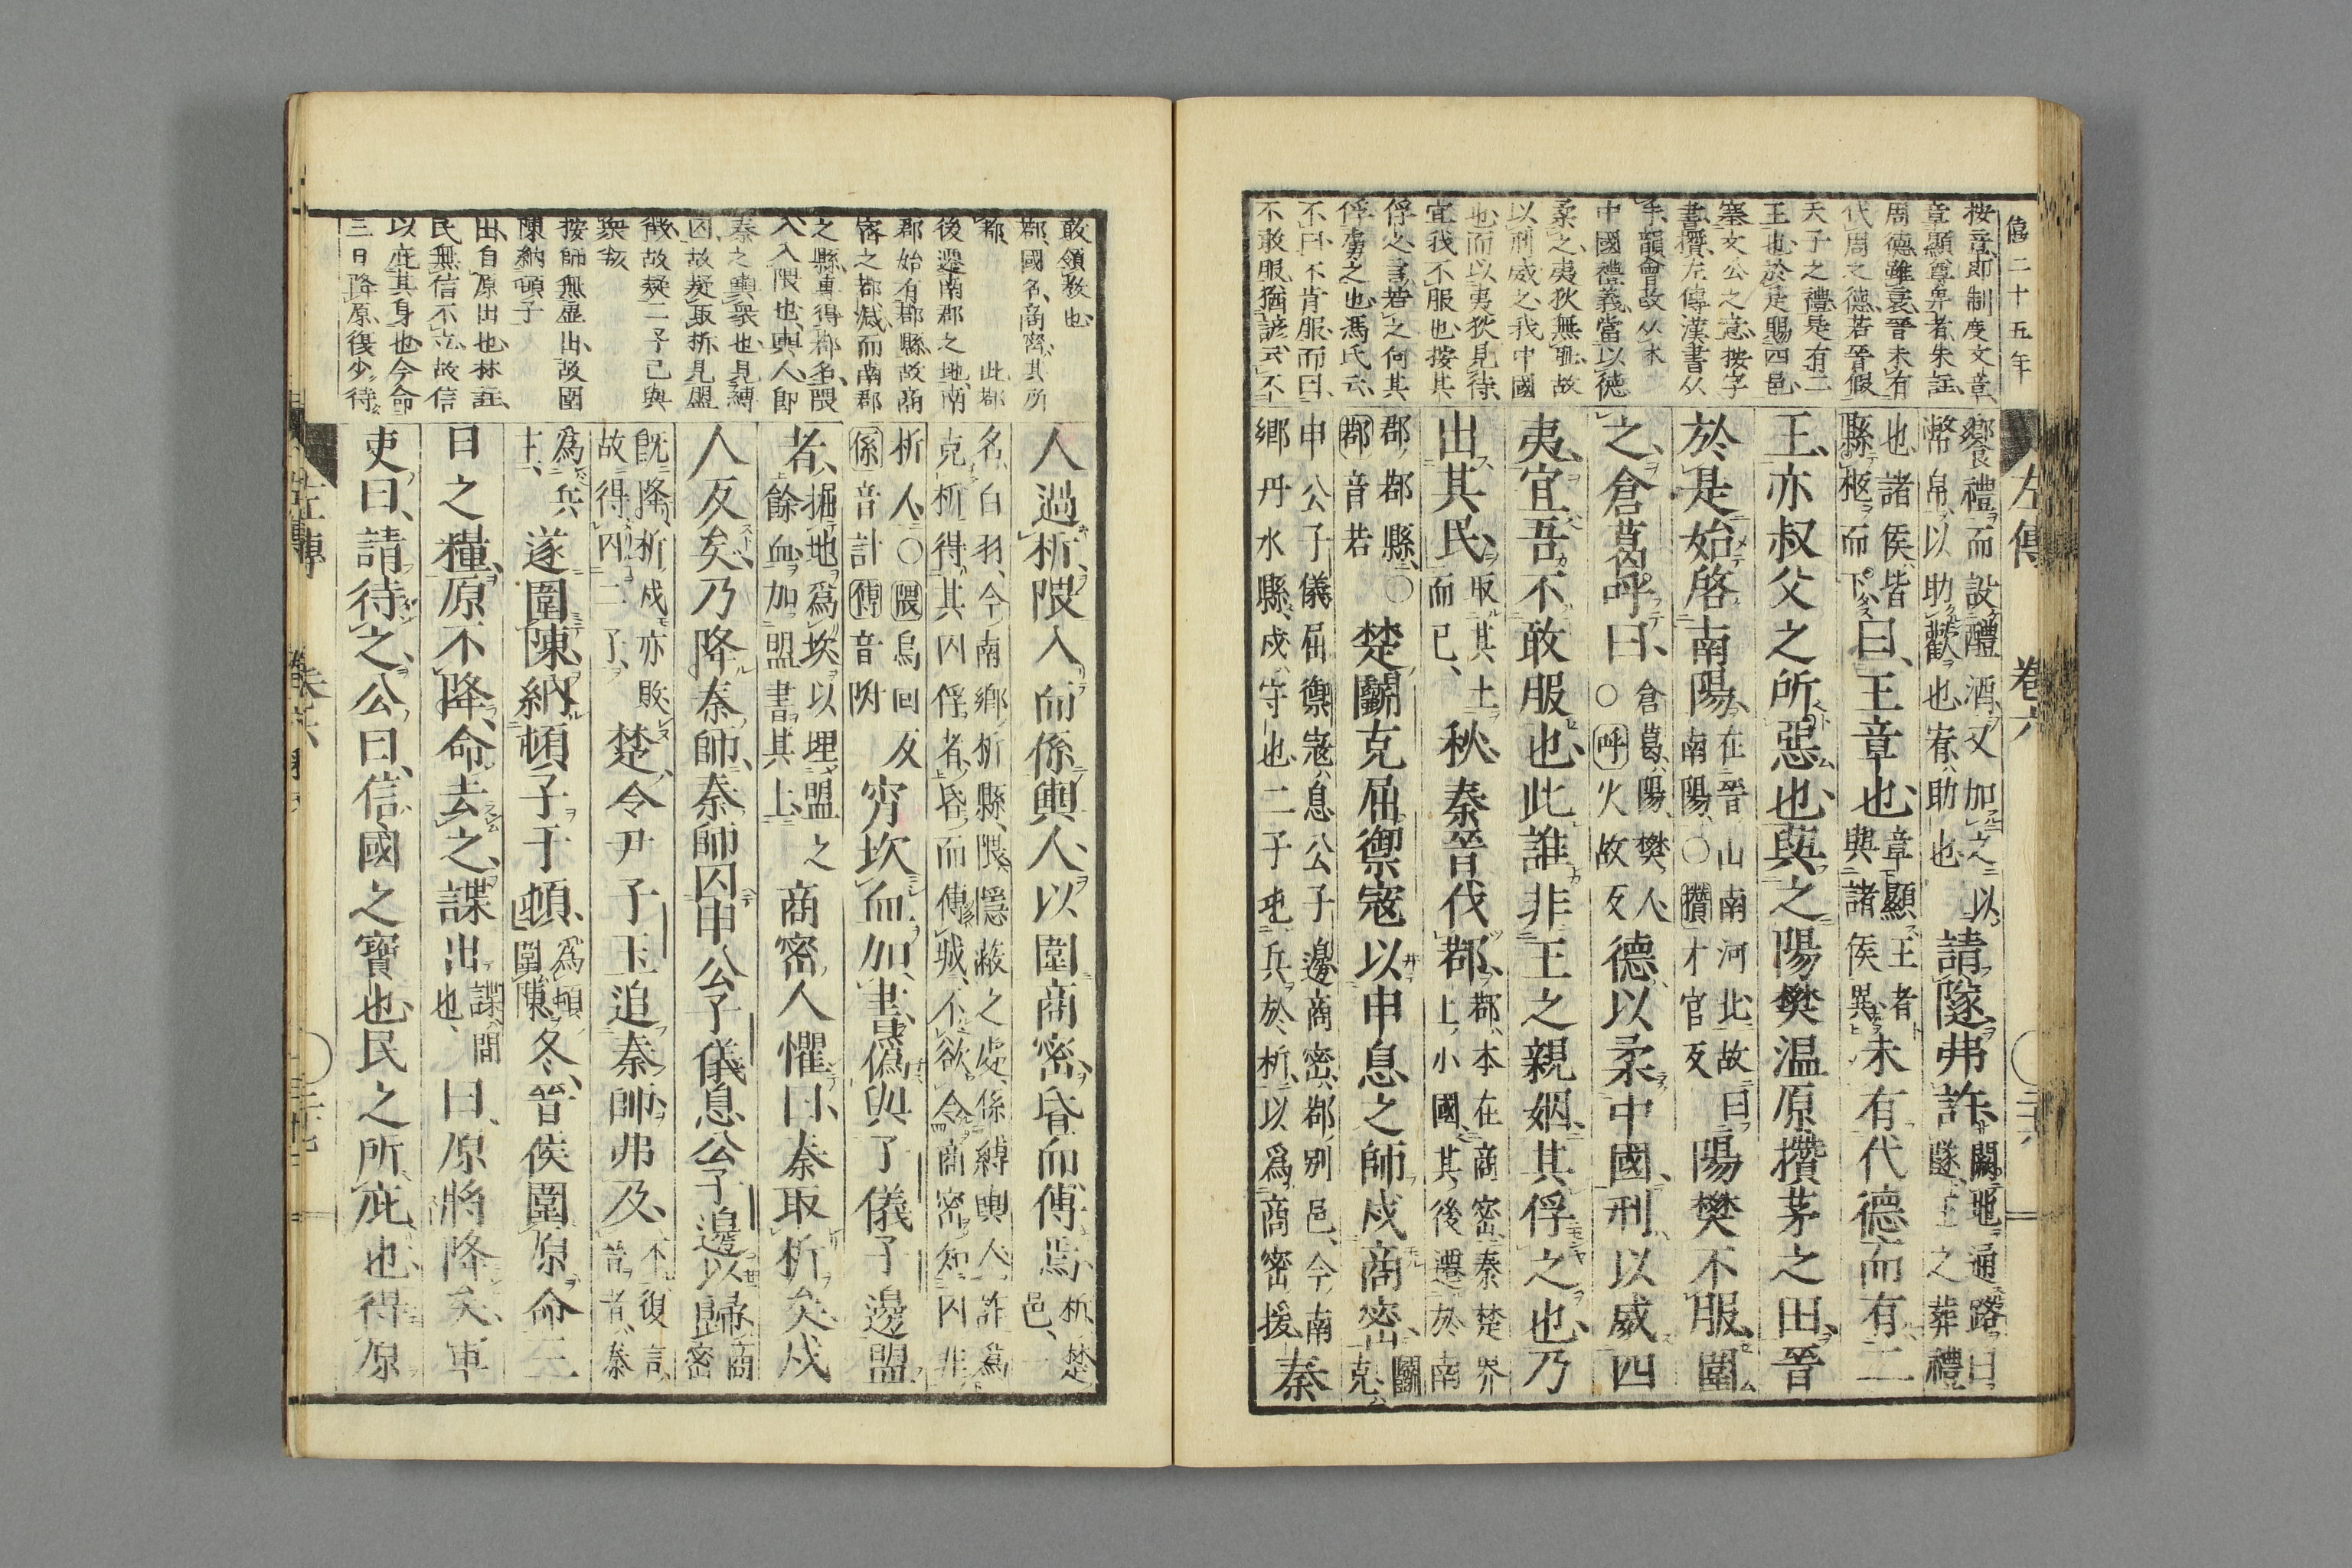 僖二十五年
按章即制度文章
章顯尊卑者朱註
周德雖衰晉未有
代周之德若晉假
天子之禮是有二
王也於是賜四邑
塞文公之意按字
書攢左傳漢書从
手韻會故从木
中國禮義當以德
柔之夷狄無耻故
以刑威之我中國
也而以夷狄見待
宜我不服也按其
俘之言若之何其
俘虜之也馮氏云
不曰不肯服而曰
不敢服猶諺云不
左傳 卷六 ○二十六
饗禮而設醴酒又加之以幣帛以助歡也宥助也請隧弗許闕地通路曰隧王之葬禮
也諸侯皆縣柩而下曰王章也章顯王者與諸侯異未有代德而有二
王亦叔父之所惡也與之陽樊温原攢茅之田晉
於是始啓南陽在晉山南河北故曰南陽○攢才官反陽樊不服圍
之倉葛呼曰倉葛陽樊人○呼火故反德以柔中國刑以威四
夷宜吾不敢服也此誰非王之親姻其俘之也乃
出其民取其土而已秋秦晉伐鄀鄀本在商密秦楚界上小國其後遷於南
郡鄀縣○鄀音若楚鬭克屈禦寇以申息之師戍商密鬭克
申公子儀屈禦寇息公子邊商密鄀別邑今南鄉丹水縣戍守也二子屯兵於析以爲商密援秦
敢領教也
鄀國名商密其所
都此鄀
後遷南郡之地南
郡始有鄀縣故商
密之都滅而南郡
之縣專得鄀名隈
入入隈也輿人即
秦之輿衆也見縛
囚故疑取析見盟
故疑二子已與
按師無虛出故圍
陳納頓子
出自原出也林註
民無信不立故信
以庇其身也今命
三日降原復少待
人過析隈入而係輿人以圍商密昏而傅焉析楚邑一
名白羽今南鄉析縣隈隱蔽之處係縛輿人詐爲克析得其囚俘者昏而傅城不欲令商密知囚非
析人○隈烏回反係音計傅音附宵坎血加書僞與子儀子邊盟
者掘地爲坎以埋盟之餘血加盟書其上商密人懼曰秦取析矣戍
人反矣乃降秦師秦師囚申公子儀息公子邊以歸商密
既降析戍亦敗故得囚二子楚令尹子玉追秦師弗及不復言秦
爲兵主遂圍陳納頓子于頓爲頓圍陳冬晉侯圍原命三
日之糧原不降命去之諜出諜間也曰原將降矣軍
吏曰請待之公曰信國之寶也民之所庇也得原